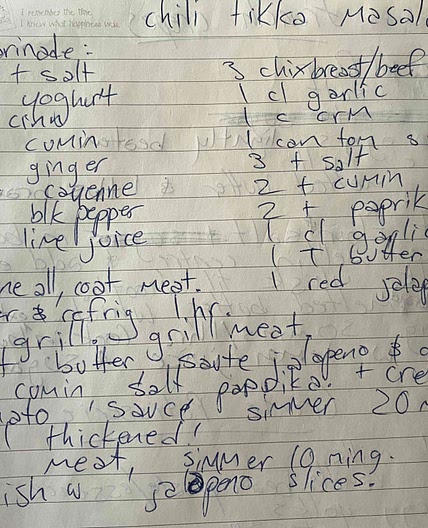 I remember the time
I knew what happiness was.
chili tikka Masal
arinade:
t salt
yoghurt
cinn
cumin
ginger
cayenne
blk pepper
lime juice
3 chixbreast/beef
1 cl garlic
1 c crm
1 can tom s
3 t salt
2 t cumin
2 t paprik
1 cl garlic
1 T butter
1 red jalap
ne all, coat meat.
er & refrig 1 hr.
grill. grill meat.
t butter saute jalopeno & g
cumin salt paprika. + cre
mato sauce simmer 20 m
thickened!
meat, simmer 10 mins.
ish w jalopeno slices.